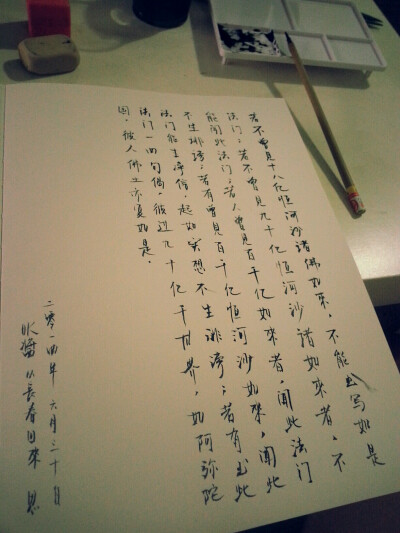 若不曾見十八亿恒河沙诸佛如來，不能书写如是
法门；若不曾見九十亿恒河沙诸如来者，不
能闻此法门；若人曾見百千亿如來者，闻此法门
不生誹谤；若有曾見百千亿恒河沙如來，闻此
法门能生净信，起如实想不生诽谤；若有书此
法门一四句偈，彼过九十亿千世界，如阿弥陀
国，彼人佛土亦复如是。
二零一四年 六月三十日
从長春回來